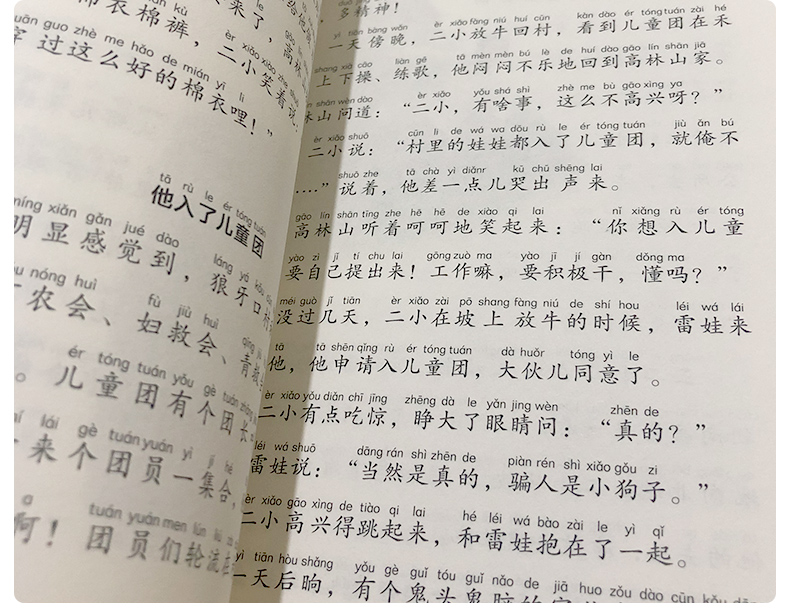 棉衣棉裤，
来了，高林
二小笑着说：
穿过这么好的棉衣哩！”
guo zhè me hǎo de mián yī li
tā rù le ér tóng tuán
他入了儿童团
míng xiǎn gǎn jué dào
明显感觉到，狼牙口村
nóng huì fù jiù huì
农会、妇救会、青救
ér tóng tuán yǒu gè tuán
。儿童团有个团长
lái gè tuán yuán yì jí hé
来个团员一集合，
a tuán yuán men lún liú
啊！团员们轮流
多精神！
yì tiān bàng wǎn èr xiǎo fàng niú huí cūn kàn dào ér tóng tuán zài hé
一天傍晚，二小放牛回村，看到儿童团在禾
shang xià cāo liàn gē tā mèn mèn bú lè de huí dào gāo lín shān jiā
上下操、练歌，他闷闷不乐地回到高林山家。
shān wèn dào èr xiǎo yǒu shá shì zhè me bù gāo xìng ya
林山问道：“二小，有啥事，这么不高兴呀？”
èr xiǎo shuō cūn li de wá wa dōu rù le ér tóng tuán jiù ǎn bú
二小说：“村里的娃娃都入了儿童团，就俺不
shuō zhe tā chà yì diǎnr kū chū shēng lai
……”说着，他差一点儿哭出声来。
gāo lín shān tīng zhe hē hē de xiào qi lai nǐ xiǎng rù ér tóng
高林山听着呵呵地笑起来：“你想入儿童
yào zì jǐ tí chu lai gōng zuò ma yào jī jí gàn dǒng ma
要自己提出来！工作嘛，要积极干，懂吗？”
méi guò jǐ tiān èr xiǎo zài pō shang fàng niú de shí hou léi wá lái
没过几天，二小在坡上放牛的时候，雷娃来
tā tā shēn qǐng rù ér tóng tuán dà huǒr tóng yì le
他，他申请入儿童团，大伙儿同意了。
èr xiǎo yǒu diǎn chī jīng zhēng dà le yǎn jing wèn zhēn de
二小有点吃惊，睁大了眼睛问：“真的？”
léi wá shuō dāng rán shì zhēn de piàn rén shì xiǎo gǒu zi
雷娃说：“当然是真的，骗人是小狗子。”
èr xiǎo gāo xìng de tiào qi lai hé léi wá bào zài le yì qǐ
二小高兴得跳起来，和雷娃抱在了一起。
yì tiān hòu shǎng yǒu gè guǐ tóu guǐ nǎo de jiā huo zǒu dào cūn kǒu
一天后晌，有个鬼头鬼脑的家伙